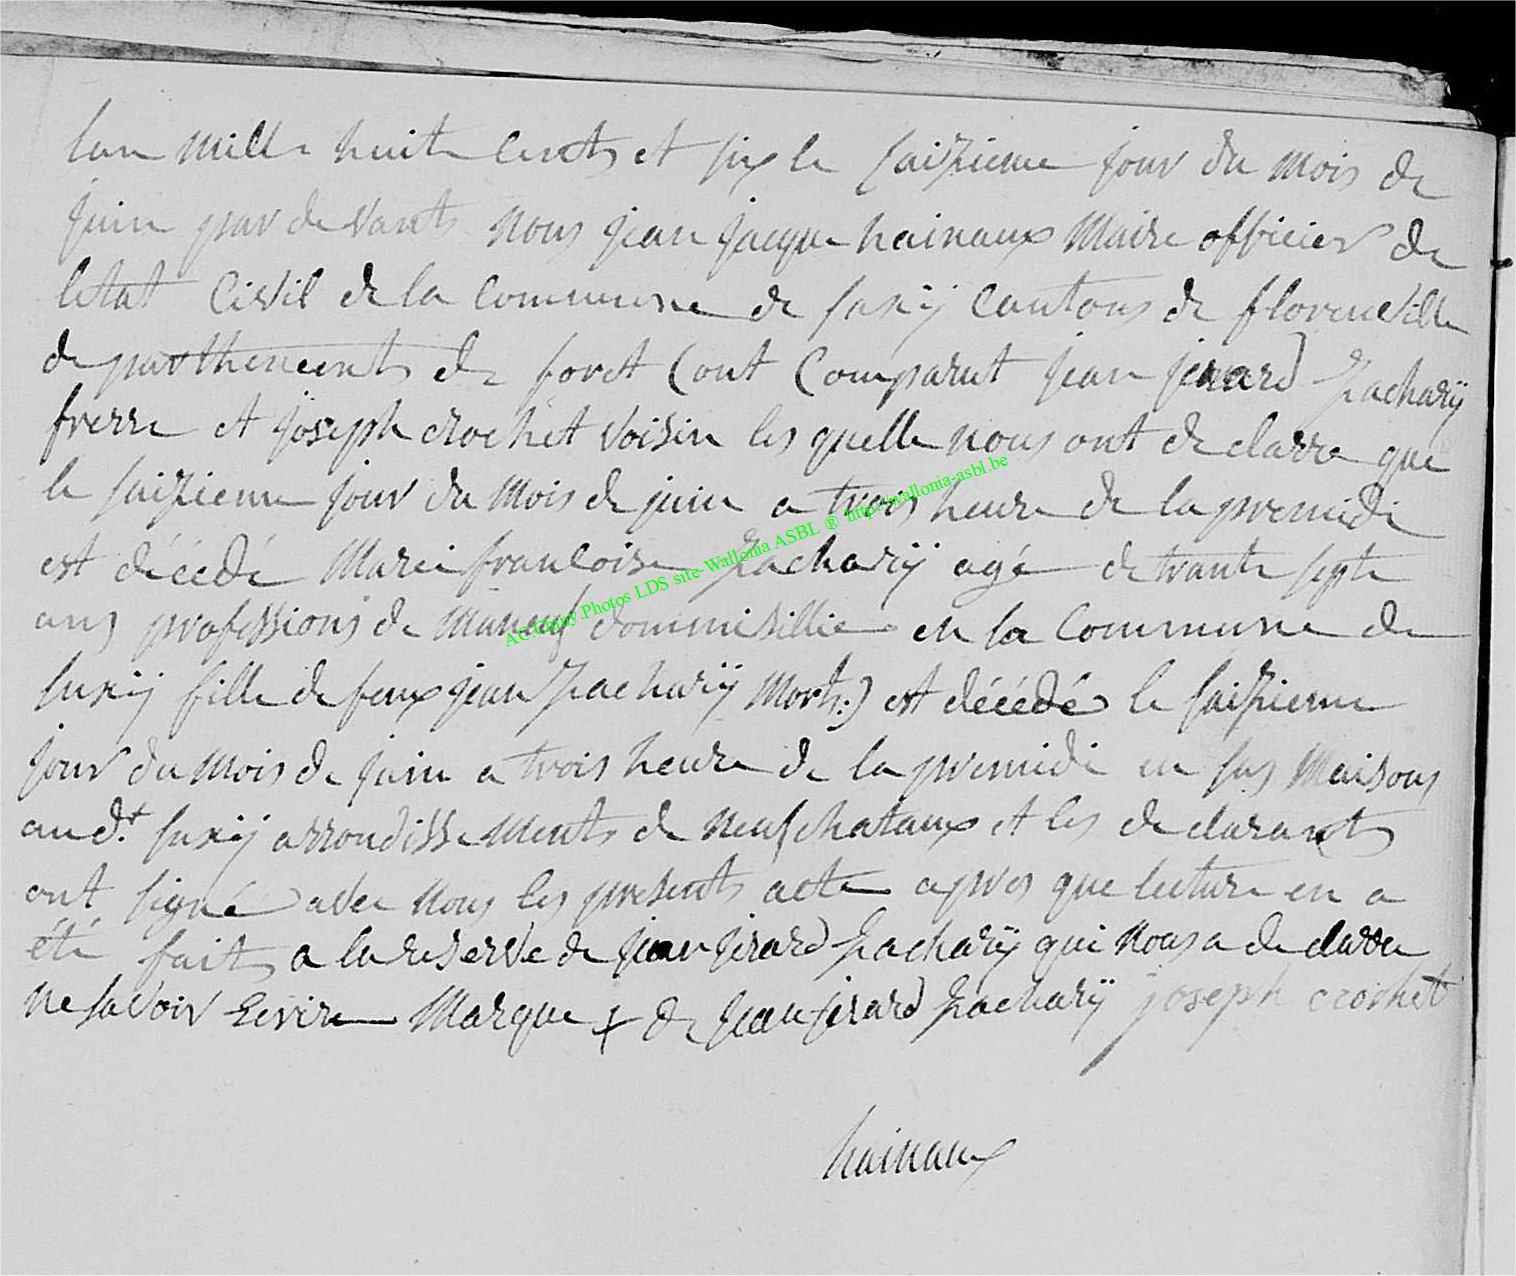 lan mille huit cents et six le saizieme jour du mois de
juin par devants nous jean jacque hainaux Maire officier de
letat Civil de la Commune de suxÿ Cantons de florenville
de parthements de foret (ont Comparut jean jerard Zacharÿ
frerre et joseph crochet voisin les quelle nous ont de clarre que
le saizieme jour du mois de juin a trois heure de la premidi
est décédé Marie francoise Zacharÿ agé de trante septe
ans professions de dommisillie en la Commune de
suxÿ fille de feux jean Zacharÿ Morts:) est décédé le saizieme
jour du mois de juin a trois heure de la premidi en sas Maisons
au d.t suxÿ arrondisse ments de neufchataux et les de clarants
ont signé avec nous les presents acte apres que lecture en a
été faits a la reserve de jean jerard Zacharÿ qui nous a de clarre
ne savoir Ecrire Marque + de jean jerard Zacharÿ joseph crochet
hainaux
AC Suxy Photos LDS site-Wallonia ASBL ® http://wallonia-asbl.be